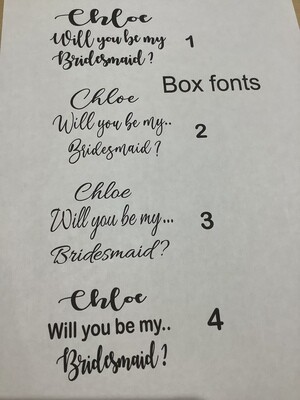 Chloe
Will you be my 1
Bridesmaid?
Box fonts
Chloe
Will you be my.. 2
Bridesmaid?
Chloe
Will you be my... 3
Bridesmaid?
Chloe
Will you be my.. 4
Bridesmaid?